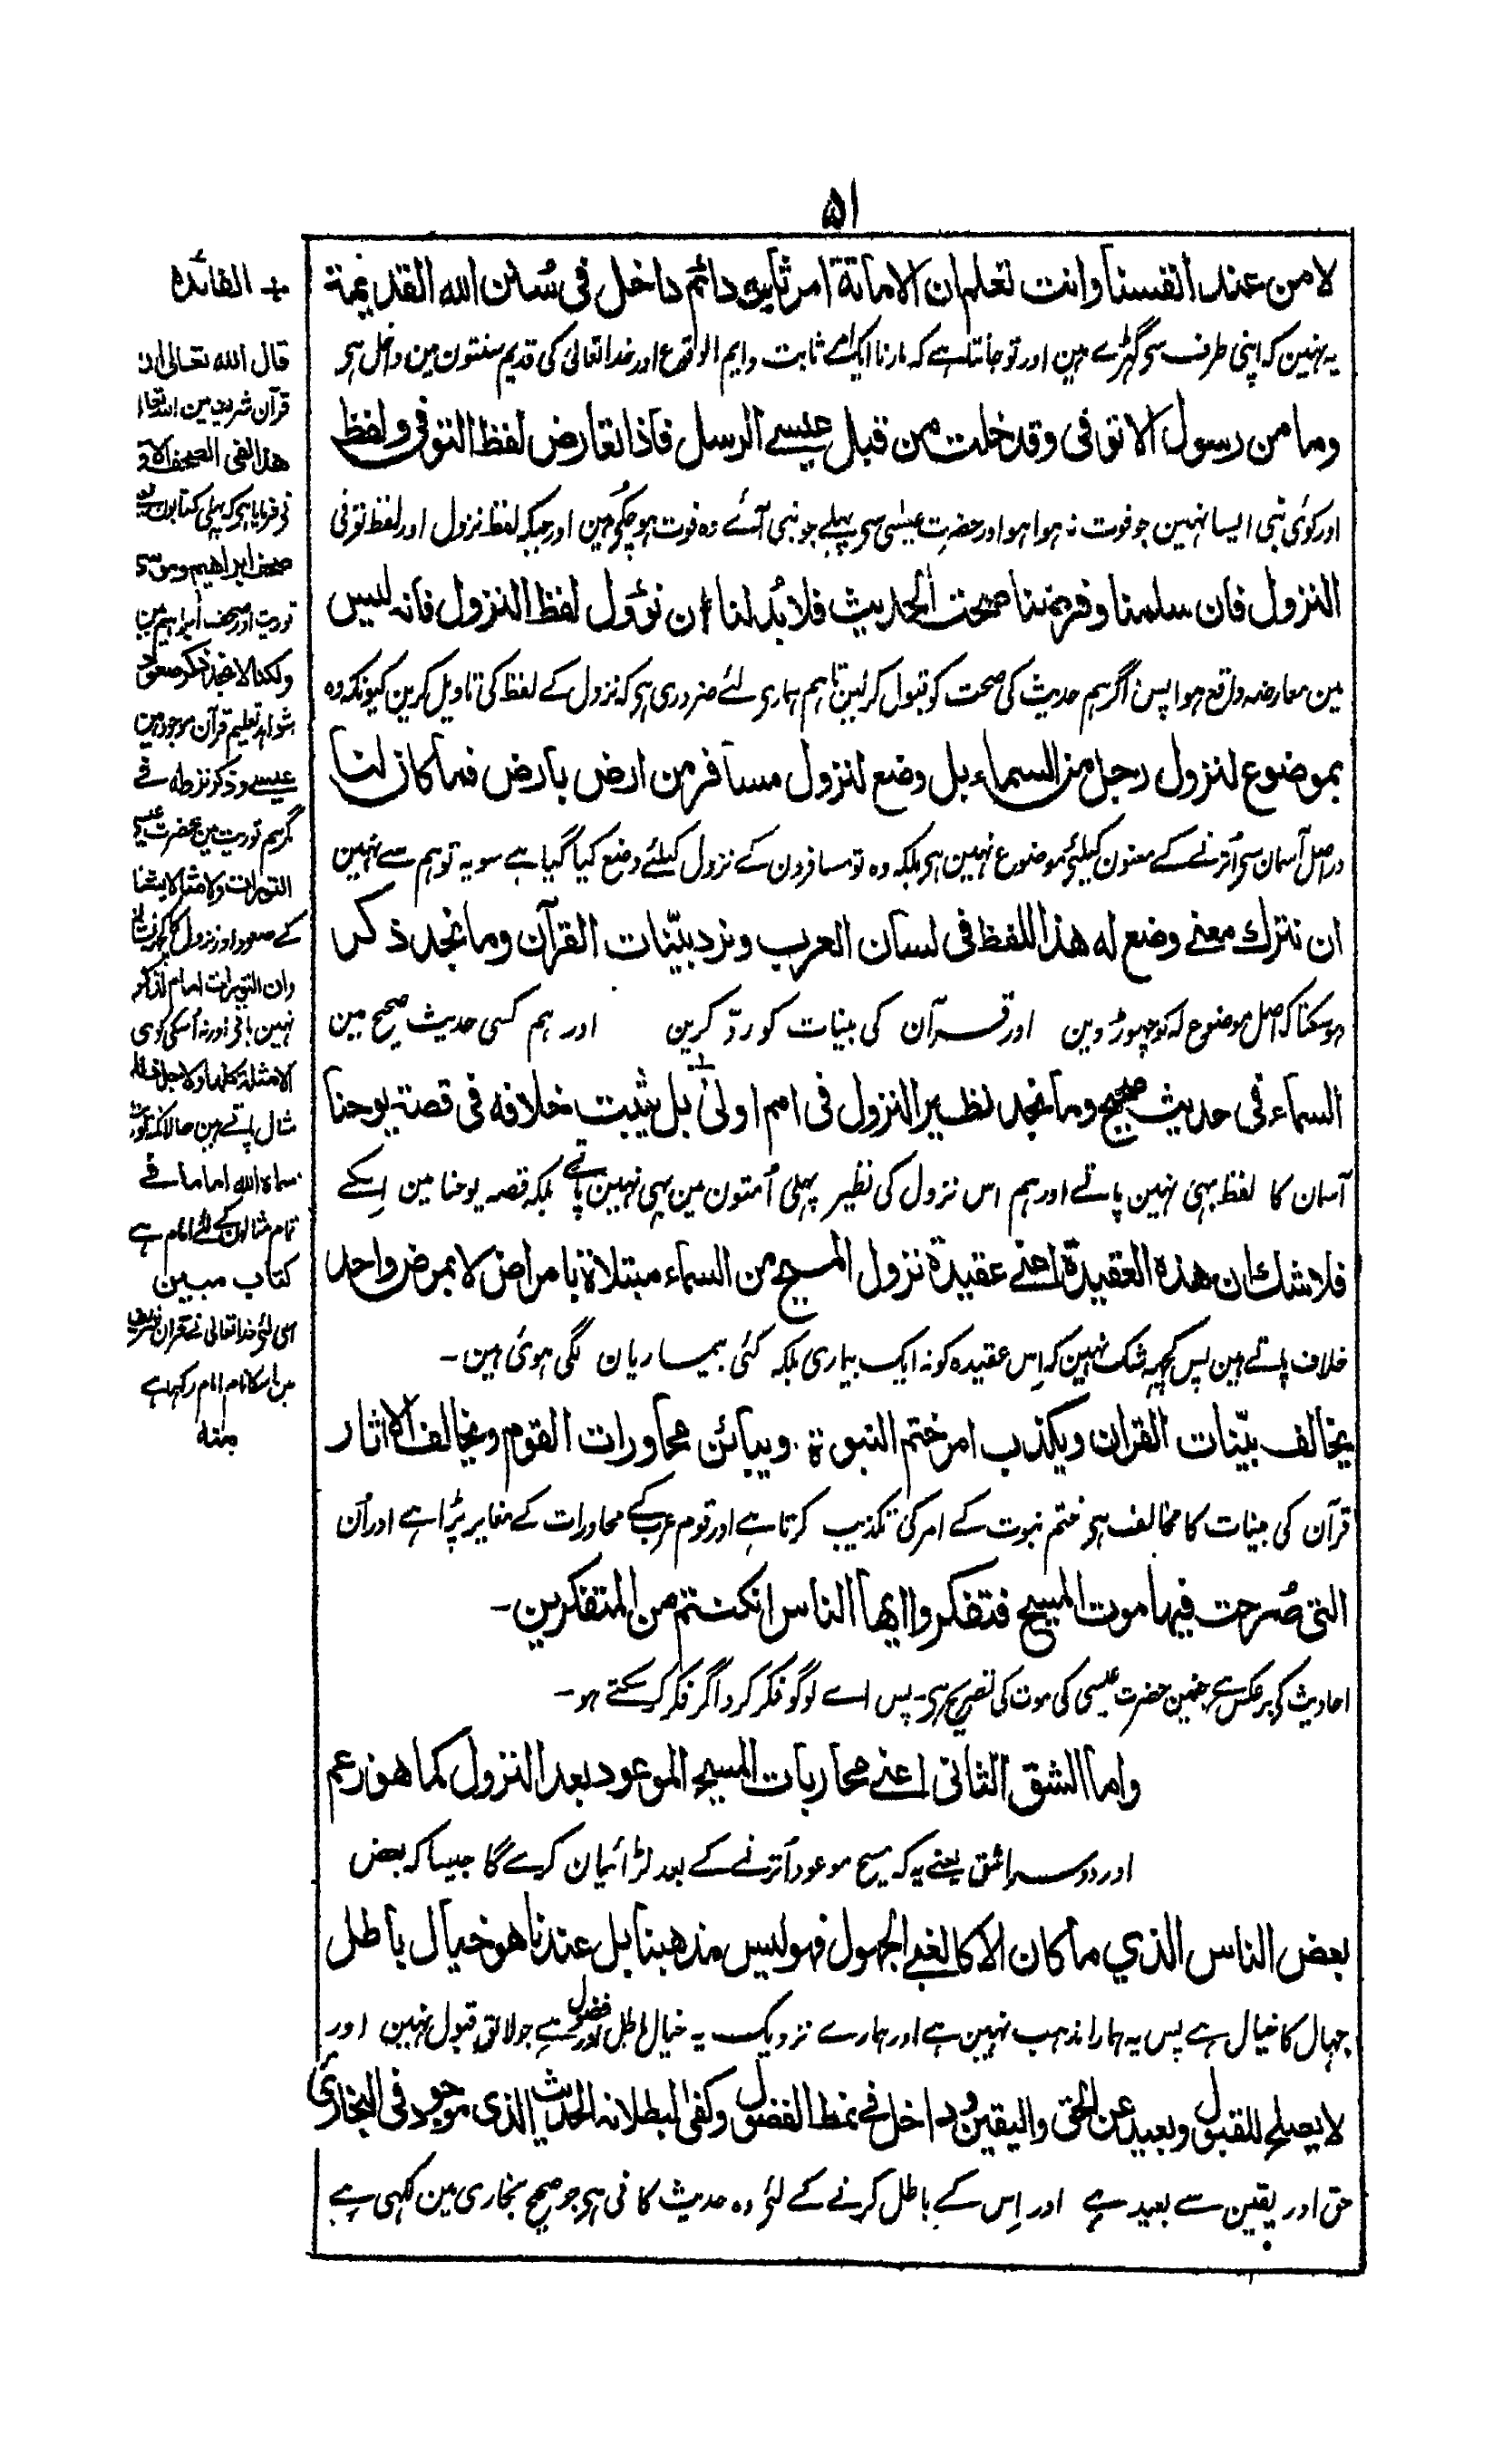 ۵۱
لا من عند انفسنا وانت تعلم ان الاماتة امر ثابت دائم داخل فی سُنن الله القدیمة
یہ نہین کہ اپنی طرف سی گھڑے ہین اور تو جانتا ہے کہ مارنا ایک امر ثابت دایم الوقوع اور خدا تعالیٰ کی قدیم سنتون مین داخل ہی
وما من رسول الا توفی وقد خلت من قبل عیسے الرسل فاذا تعارض لفظ التوفی ولفظ
اور کوئی نبی ایسا نہین جو فوت نہ ہوا ہو اور حضرت عیسیٰ سی پہلے جو نبی آئے وہ فوت ہو چکی ہین اور جبکہ لفظ نزول اور لفظ توفی
النزول فان سلمنا وفرضنا صحت الحدیث فلا بُد لنا ان نؤول لفظ النزول فانه لیس
مین معارضہ واقع ہوا پس اگر ہم حدیث کی صحت کو قبول کر لین تاہم ہماری لئے ضروری ہی کہ نزول کے لفظ کی تاویل کرین کیونکہ وہ
بموضوع لنزول رجل من السماء بل وضع لنزول مسافر من ارض بارض فما کان لنا
دراصل آسمان سی اُترنے کے معنون کیلئی موضوع نہین ہی بلکہ وہ تو مسافرون کے نزول کیلئے وضع کیا گیا ہے سو یہ تو ہم سے نہین
ان نترك معنے وضع له هذا اللفظ فی لسان العرب ونرد بیّنات القرآن وما نجد ذکر
ہو سکتا کہ اصل موضوع لہ کو چہوڑ دین اور قرآن کی بینات کو ردّ کرین اور ہم کسی حدیث صحیح مین
السماء فی حدیث صحیح وما نجد نظیر النزول فی امم اولیٰ بل یثبت خلافه فی قصة یوحنا
آسمان کا لفظ بہی نہین پاتے اور ہم اس نزول کی نظیر پہلی اُمتون مین بہی نہین پاتے بلکہ قصہ یوحنا مین اِسکے
فلا شك ان هذه العقیدة اعنے عقیدة نزول المسیح من السماء مبتلاة بامراض لا بمرض واحد
خلاف پاتے ہین پس کچھ شک نہین کہ اِس عقیدہ کو نہ ایک بیماری بلکہ کئی بیماریان لگی ہوئی ہین۔
یخالف بیّنات القران ویکذب امر ختم النبوة. ویبائن محاورات القوم ویخالف الاثار
قرآن کی بینات کا مخالف ہی ختم نبوت کے امر کی تکذیب کرتا ہے اور قوم عرب کے محاورات کے مغایر پڑا ہے اور اُن
التی صُرحت فیها موت المسیح فتفکروا ایها الناس ان کنتم من المتفکرین۔
احادیث کی برعکس ہے جنمین حضرت عیسیٰ کی موت کی تصریح ہی۔ پس اے لوگو فکر کرو اگر فکر کر سکتے ہو۔
واما الشق الثانی اعنے محاربات المسیح الموعود بعد النزول کما هو زعم
اور دوسرا شق یعنے یہ کہ مسیح موعود اُترنے کے بعد لڑائیان کرے گا جیسا کہ بعض
بعض الناس الذی ما کان الا کالغبے الجهول فهو لیس مذهبنا بل عندنا هو خیال باطل
جہال کا خیال ہے پس یہ ہمارا مذہب نہین ہے اور ہمارے نزدیک یہ خیال باطل اور فضول ہے جو لائق قبول نہین اور
لا یصلح للقبول وبعید عن الحق والیقین وداخل فے نمط الفضول وکفی لبطلانه الحدیث الذی موجود فی البخاری
حق اور یقین سے بعید ہے اور اِس کے باطل کرنے کے لئی وہ حدیث کافی ہی جو صحیح بخاری مین لکہی ہے
الفائدہ
قال الله تعالی ان
قرآن شریف مین اللہ تعالیٰ
هذا لفی الصحف الاولی
نی فرمایا ہی کہ پہلی کتابون
صحف ابراهیم وموسی
توریت اور صحف ابراہیم مین
ولکنا لا نجد ذکر صعود
شواہد تعلیم قرآن موجود ہین
عیسے وذکر نزوله فے
مگر ہم توریت مین حضرت عیسیٰ
التورات ولا مثلا یشابه
کے صعود اور نزول کا کچھ نشان
وان التورات امام لذکر
نہین پاتی اور نہ اُسکی کوئی
الامثلة کلها ولاجل ذلك
مثال پاتے ہین حالانکہ توریت
سماه الله اماما فے
تمام مثالون کے لئی امام ہے
کتاب مبین
اسی لئی خدا تعالی نے قرآن شریف
مین اسکا نام امام رکہا ہے
منه